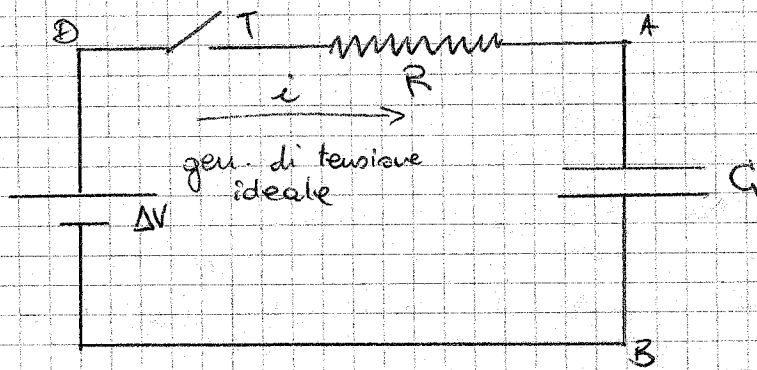 D T A
R
i
gen. di tensione
ideale
C
ΔV
B